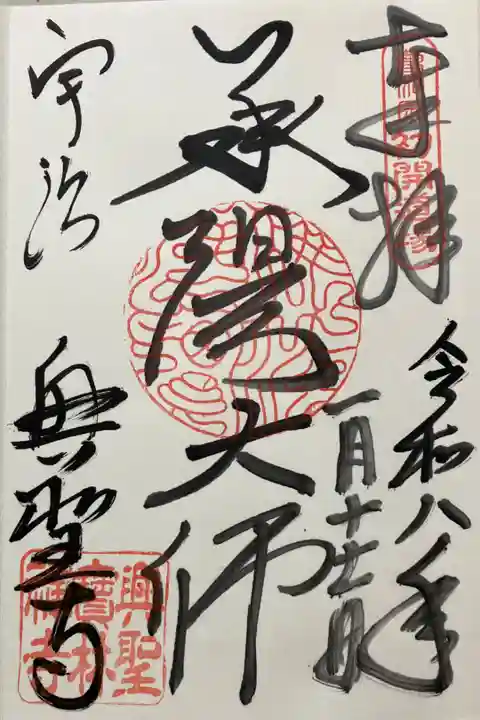 奉拝
令和八年
一月十七日
承陽大師
宇治
興聖寺
興聖
寶林
禅寺